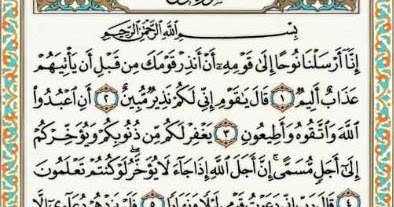 بِسْمِ اللَّهِ الرَّحْمَٰنِ الرَّحِيمِ
إِنَّا أَرْسَلْنَا نُوحًا إِلَىٰ قَوْمِهِ أَنْ أَنذِرْ قَوْمَكَ مِن قَبْلِ أَن يَأْتِيَهُمْ
عَذَابٌ أَلِيمٌ ١ قَالَ يَا قَوْمِ إِنِّي لَكُمْ نَذِيرٌ مُّبِينٌ ٢ أَنِ اعْبُدُوا
اللَّهَ وَاتَّقُوهُ وَأَطِيعُونِ ٣ يَغْفِرْ لَكُم مِّن ذُنُوبِكُمْ وَيُؤَخِّرْكُمْ
إِلَىٰ أَجَلٍ مُّسَمًّى إِنَّ أَجَلَ اللَّهِ إِذَا جَاءَ لَا يُؤَخَّرُ لَوْ كُنتُمْ تَعْلَمُونَ
٤ قَالَ رَبِّ إِنِّي دَعَوْتُ قَوْمِي لَيْلًا وَنَهَارًا ٥ فَلَمْ يَزِدْهُمْ دُعَائِي إِلَّا